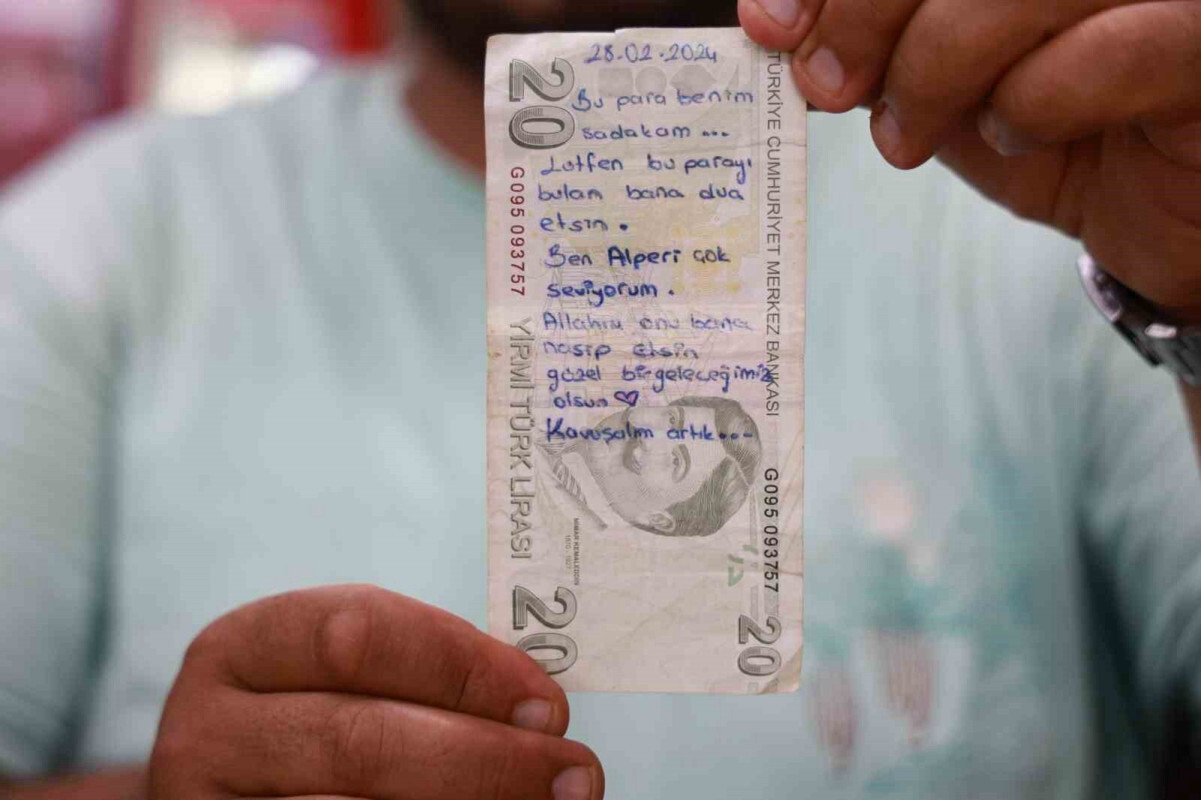 28.02.2024
Bu para benim
sadakam...
Lütfen bu parayı
bulan bana dua
etsin.
Ben Alperi çok
seviyorum.
Allahım onu bana
nasip etsin
güzel bir geleceğimiz
olsun ♡
Kavuşalım artık...
20
G095 093757
YİRMİ TÜRK LİRASI
20
TÜRKİYE CUMHURİYET MERKEZ BANKASI
G095 093757
20
MİMAR KEMALEDDİN
1870 - 1927